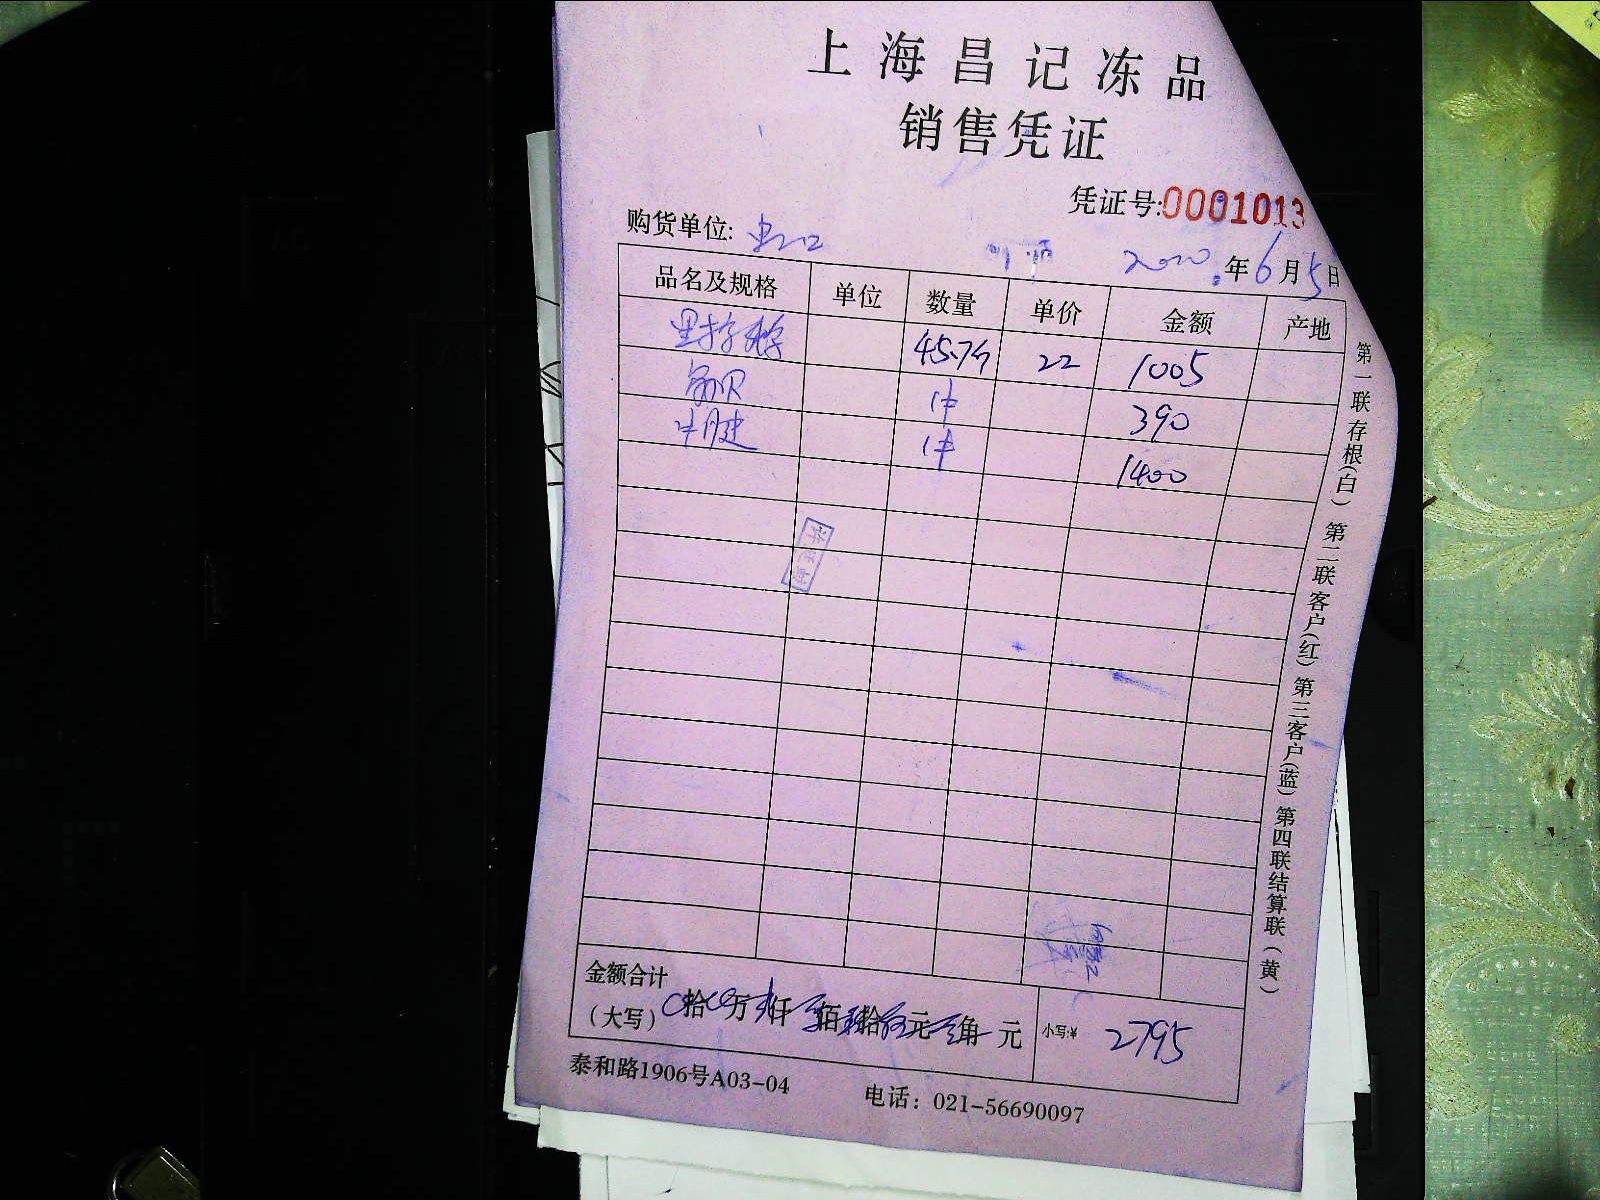 上海昌记冻品
销售凭证
凭证号:0001013
购货单位: 虹口
2020年6月5日
品名及规格 单位 数量 单价 金额 产地
45.7斤 22 1005
1件 390
牛腱 1件 1400
金额合计
(大写) 拾 万 仟 佰 拾 元 角 元 小写:¥ 2795
泰和路1906号A03-04 电话：021-56690097
第一联存根(白) 第二联客户(红) 第三客户(蓝) 第四联结算联(黄)